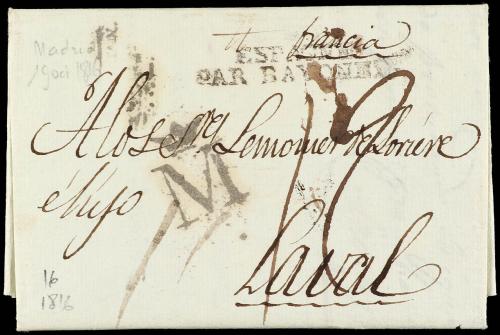 Francia
Madrid
19 oct 1816
ESPAGNE
PAR BAYONNE
A los S.res Lemonier de Lorière
é hijo
M
Laval
16
1816